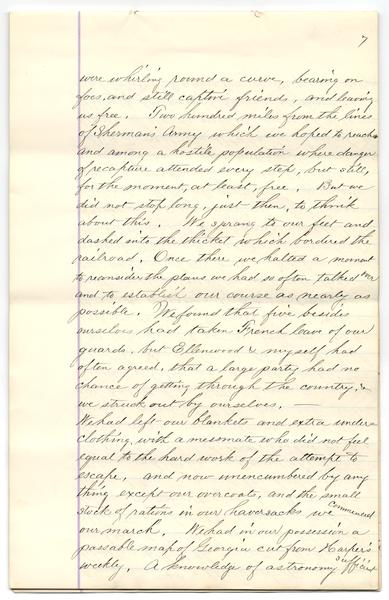 7
were whirling round a curve, bearing on
foes, and still captive friends, and leaving
us free. Two hundred miles from the lines
of Sherman's Army which we hoped to reach
and among a hostile population where danger
of recapture attended every step, but still,
for the moment, at least, free. But we
did not stop long, just then, to think
about this. We sprang to our feet and
dashed into the thicket which bordered the
railroad. Once there we halted a moment
to reconsider the plans we had so often talked over
and to establish our course as nearly as
possible. We found that five besides
ourselves had taken French leave of our
guards, but Ellenwood & myself had
often agreed, that a large party had no
chance of getting through the country, so
we struck out by ourselves. —
We had left our blankets and extra under
clothing, with a messmate who did not feel
equal to the hard work of the attempt to
escape, and now unencumbered by any
thing except our overcoats, and the small
stock of rations in our haversacks we commenced
our march. We had in our possession a
passable map of Georgia cut from Harper's
weekly. A knowledge of astronomy sufficient